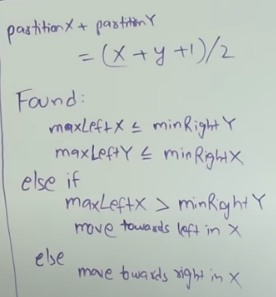 partitionX + partitionY
= (x + y +1)/2
Found:
maxLeftX ≤ minRightY
maxLeftY ≤ minRightX
else if
maxLeftX > minRightY
move towards left in X
else
move towards right in X